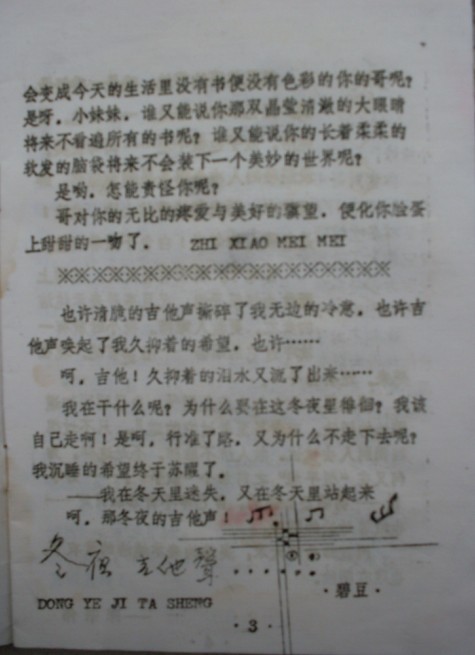 会变成今天的生活里没有书便没有色彩的你的哥呢？
是呀，小妹妹，谁又能说你那双晶莹清澈的大眼睛
将来不看遍所有的书呢？谁又能说你的长着柔柔的
软发的脑袋将来不会装下一个美妙的世界呢？
是哟，怎能责怪你呢？
哥对你的无比的疼爱与美好的冀望，便化你脸蛋
上甜甜的一吻了。 ZHI XIAO MEI MEI
也许清脆的吉他声撕碎了我无边的冷意，也许吉
他声唤起了我久抑着的希望，也许……
呵，吉他！久抑着的泪水又流了出来……
我在干什么呢？为什么要在这冬夜里徘徊？我该
自己走啊！是呵，行准了路，又为什么不走下去呢？
我沉睡的希望终于苏醒了。
——我在冬天里迷失，又在冬天里站起来
呵，那冬夜的吉他声！
冬夜吉他聲
DONG YE JI TA SHENG
·碧豆·
·3·